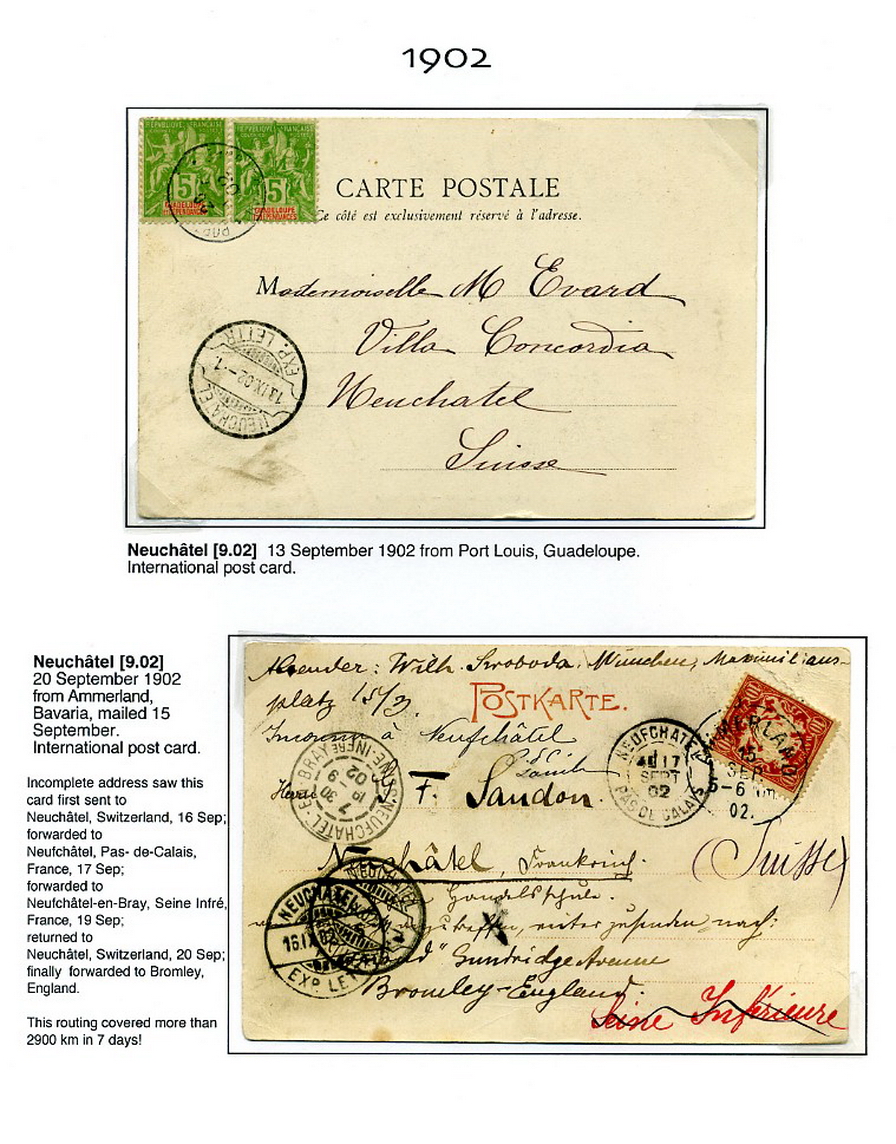 1902
REPUBLIQUE FRANÇAISE REPUBLIQUE FRANÇAISE
5 5
GUADELOUPE GUADELOUPE
ET DEPENDANCES ET DEPENDANCES
CARTE POSTALE
Ce côté est exclusivement réservé à l'adresse.
Mademoiselle M Evard
Villa Concordia
Neuchatel
Suisse
EXP. LETTR.
13.IX.02.-1.
NEUCHATEL
Neuchâtel [9.02] 13 September 1902 from Port Louis, Guadeloupe.
International post card.
Neuchâtel [9.02]
20 September 1902
from Ammerland,
Bavaria, mailed 15
September.
International post card.
Incomplete address saw this
card first sent to
Neuchâtel, Switzerland, 16 Sep;
forwarded to
Neufchâtel, Pas- de-Calais,
France, 17 Sep;
forwarded to
Neufchâtel-en-Bray, Seine Infré,
France, 19 Sep;
returned to
Neuchâtel, Switzerland, 20 Sep;
finally forwarded to Bromley,
England.
This routing covered more than
2900 km in 7 days!
Absender: Wilh. Swoboda, München, Maximilians-
platz 15/3.
POSTKARTE.
Inconnu à Neufchâtel
Herrn F. Sandon.
Neuchâtel, Frankreich. (Suisse)
Handelsschule.
nachzusenden nach:
Sundridge Avenue
Bromley-England.
Seine Inférieure
NEUFCHATEL
17
SEPT
02
PAS DE CALAIS
10
AMMERLAND
15
SEP
5-6
02.
NEUFCHATEL-EN-BRAY
SEINE-INFRE
7 30
19 - 9
02
NEUCHATEL
16.IX.02
EXP. LETTR.